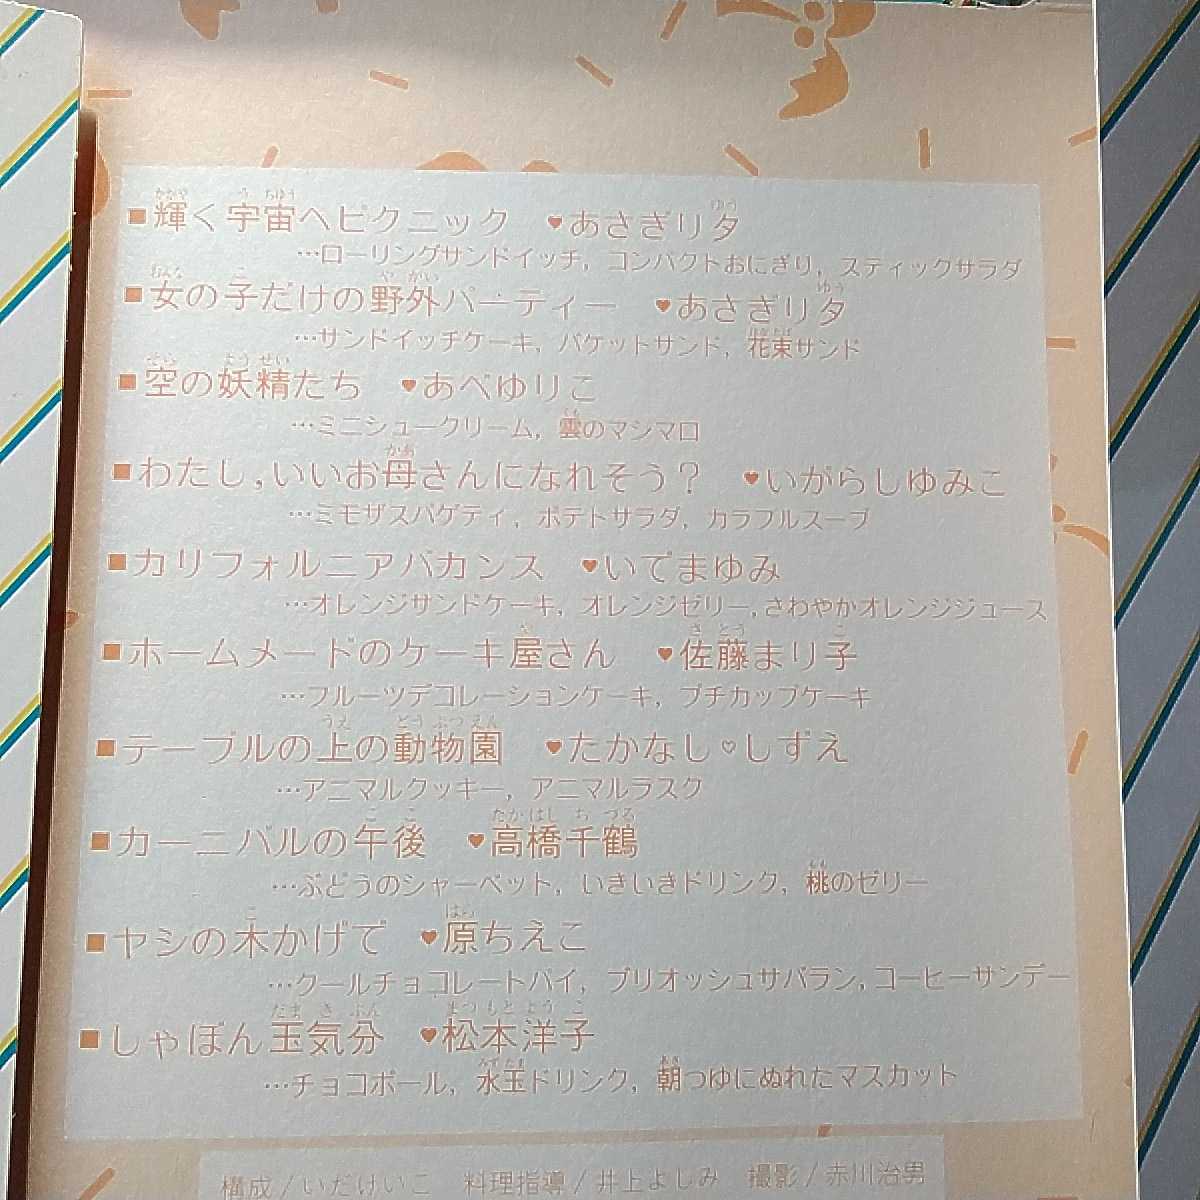 ■輝く宇宙へピクニック ♥あさぎり夕
…ローリングサンドイッチ, コンパクトおにぎり, スティックサラダ
■女の子だけの野外パーティー ♥あさぎり夕
…サンドイッチケーキ, バケットサンド, 花束サンド
■空の妖精たち ♥あべゆりこ
…ミニシュークリーム, 雲のマシマロ
■わたし,いいお母さんになれそう? ♥いがらしゆみこ
…ミモザスパゲティ, ポテトサラダ, カラフルスープ
■カリフォルニアバカンス ♥いでまゆみ
…オレンジサンドケーキ, オレンジゼリー,さわやかオレンジジュース
■ホームメードのケーキ屋さん ♥佐藤まり子
…フルーツデコレーションケーキ, プチカップケーキ
■テーブルの上の動物園 ♥たかなし♡しずえ
…アニマルクッキー, アニマルラスク
■カーニバルの午後 ♥高橋千鶴
…ぶどうのシャーベット, いきいきドリンク, 桃のゼリー
■ヤシの木かげで ♥原ちえこ
…クールチョコレートパイ, ブリオッシュサバラン,コーヒーサンデー
■しゃぼん玉気分 ♥松本洋子
…チョコボール, 水玉ドリンク, 朝つゆにぬれたマスカット
構成/いだけいこ 料理指導/井上よしみ 撮影/赤川治男